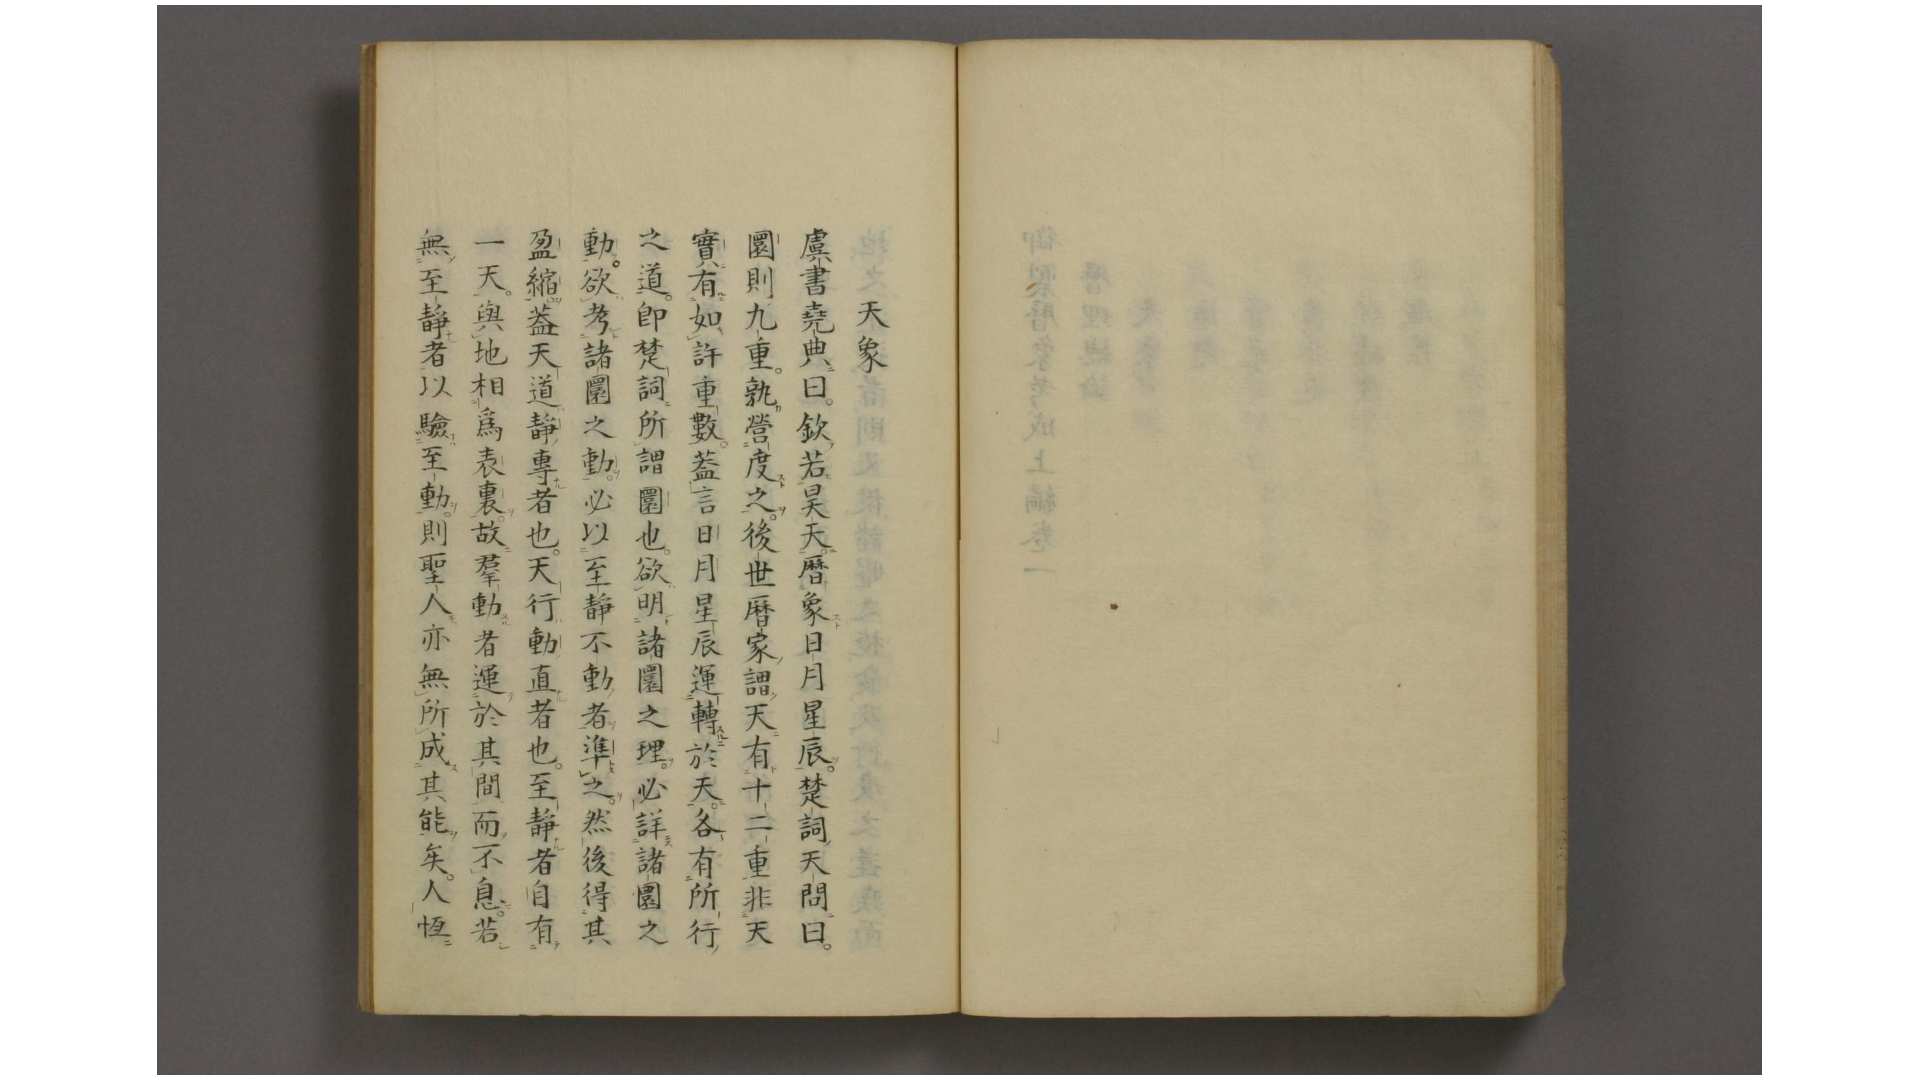 天象
虞書堯典曰。欽若昊天。曆象日月星辰。楚詞天問曰。
圜則九重。孰營度之。後世曆家謂天有十二重非天
實有如許重數。葢言日月星辰運轉於天。各有所行
之道。卽楚詞所謂圜也。欲明諸圜之理。必詳諸圜之
動。欲考諸圜之動。必以至靜不動者準之。然後得其
盈縮葢天道靜專者也。天行動直者也。至靜者自有
一天。與地相爲表裏。故羣動者運於其間而不息。若
無至靜者以驗至動。則聖人亦無所成其能矣。人恆